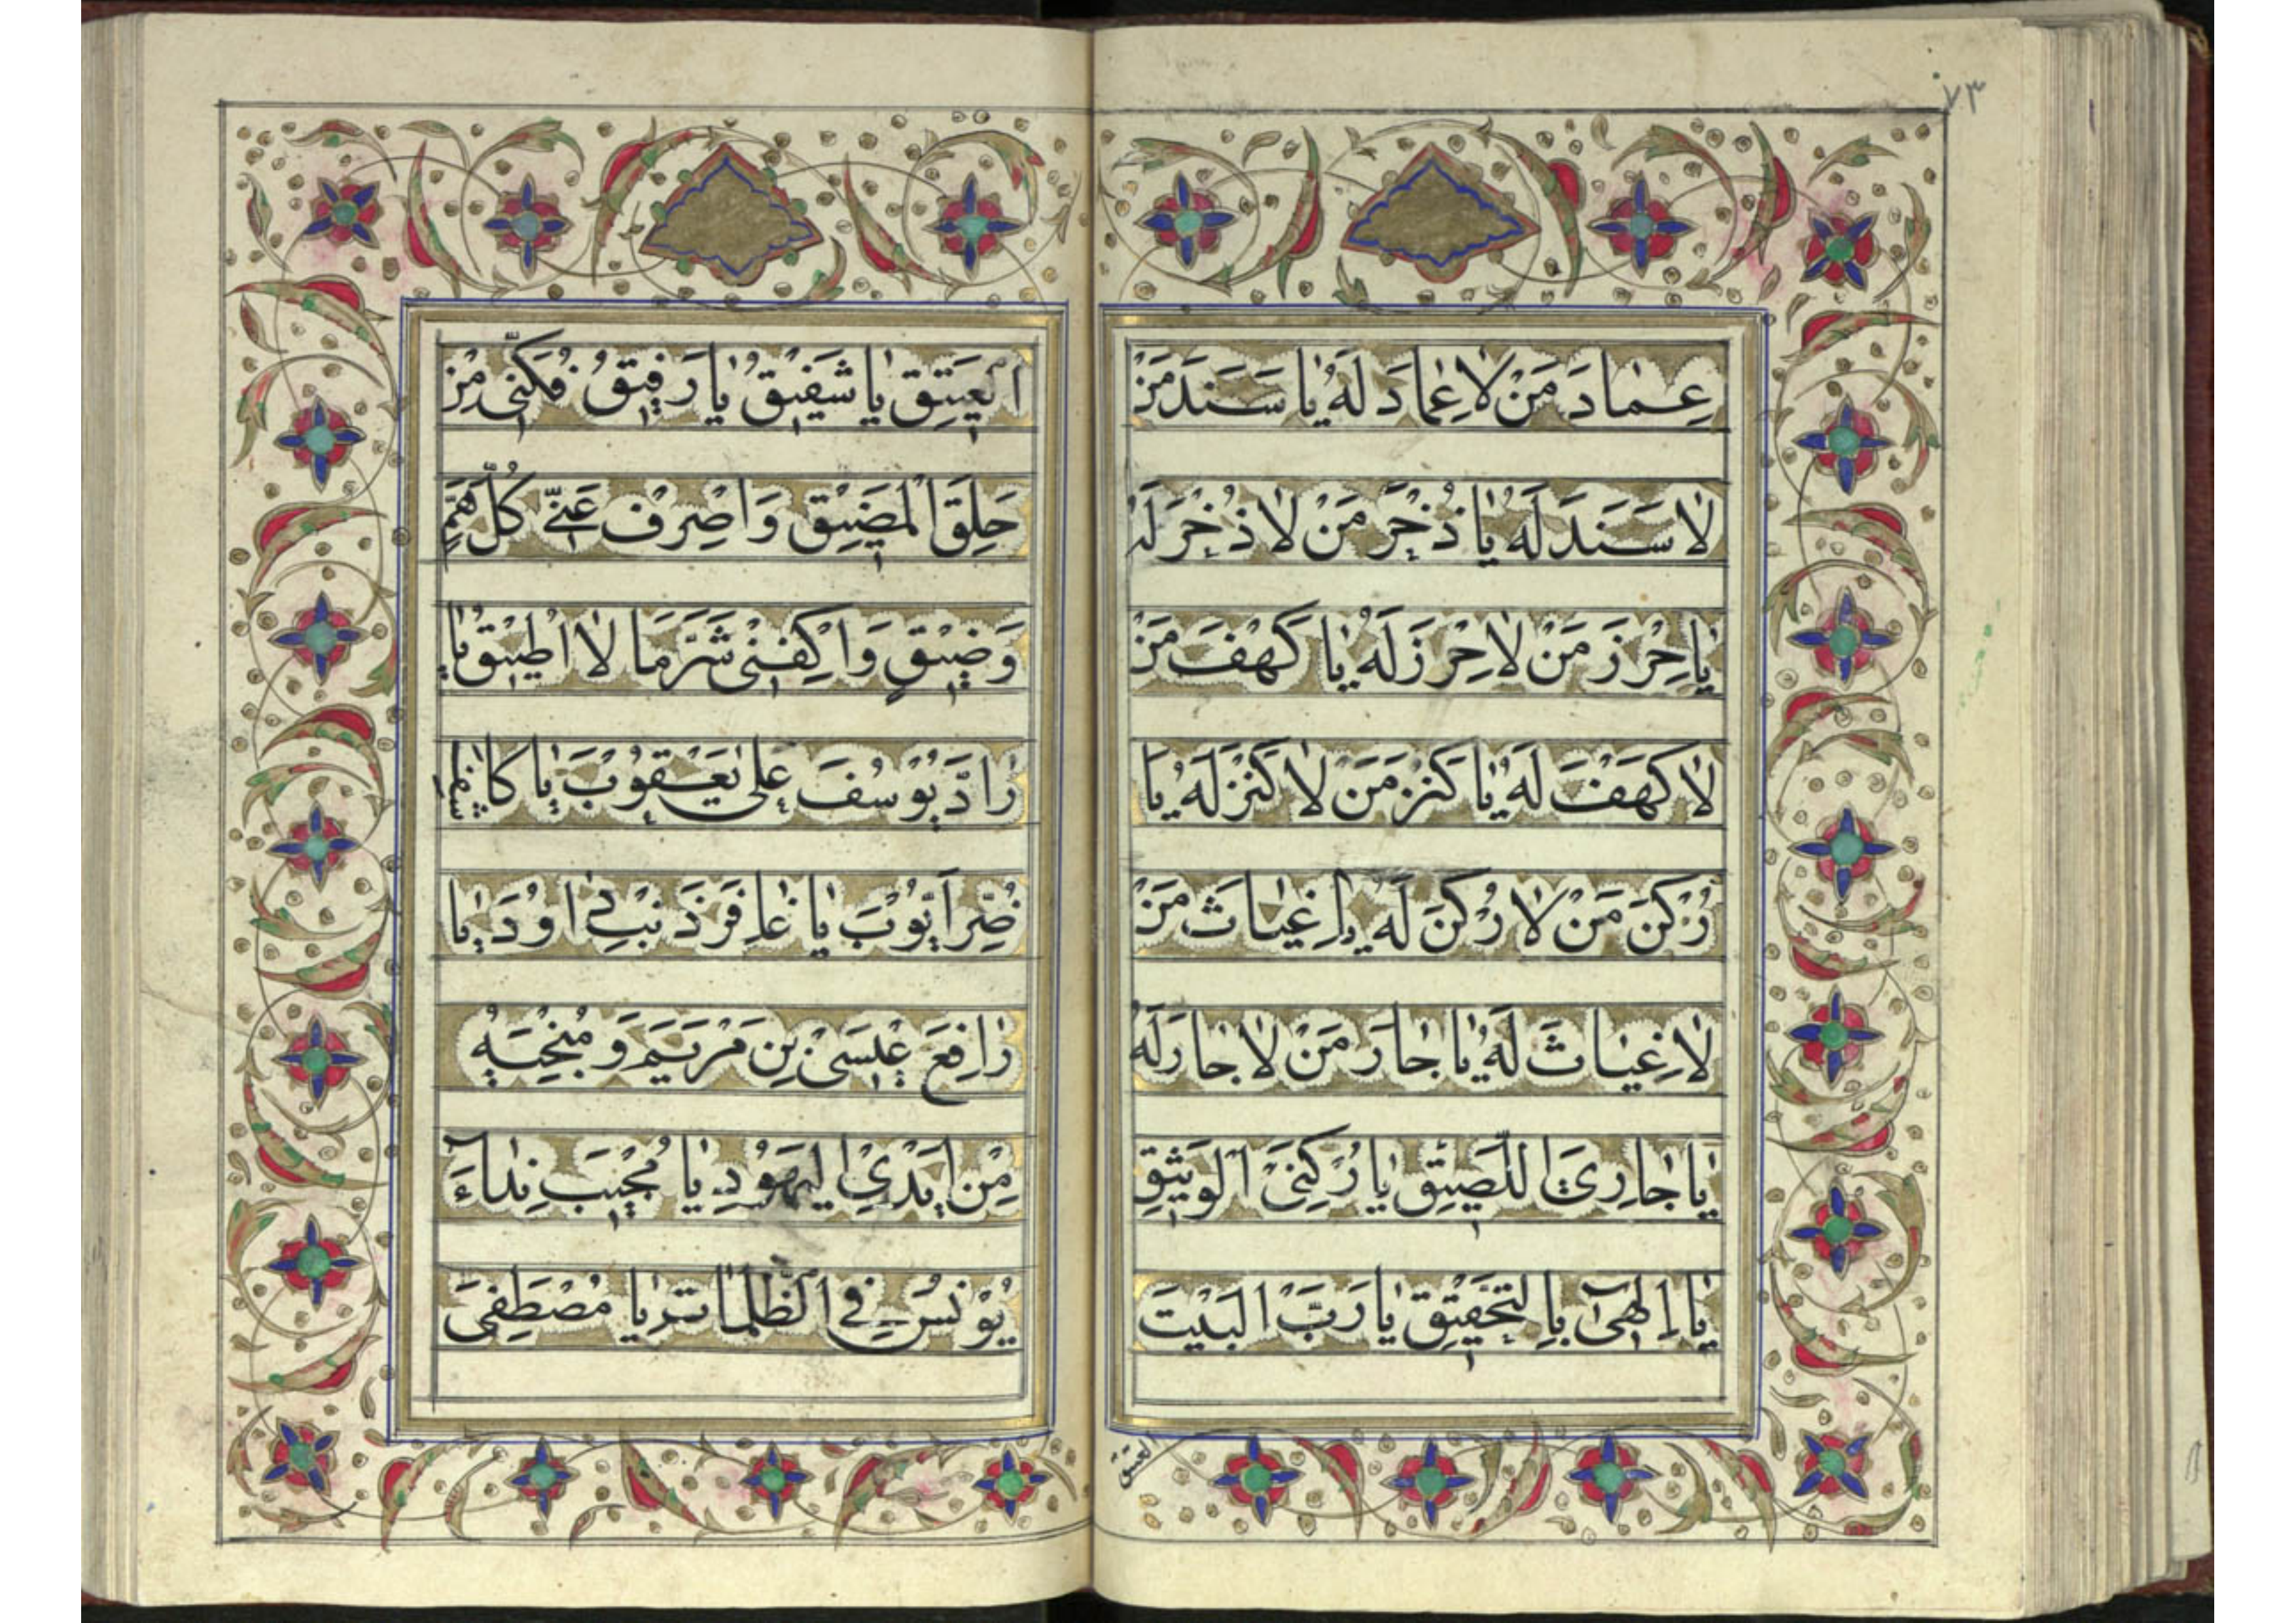 ٧٣
عِمادَ مَنْ لا عِمادَ لَهُ يا سَنَدَ مَنْ
لا سَنَدَ لَهُ يا ذُخْرَ مَنْ لا ذُخْرَ لَهُ
يا حِرْزَ مَنْ لا حِرْزَ لَهُ يا كَهْفَ مَنْ
لا كَهْفَ لَهُ يا كَنْزَ مَنْ لا كَنْزَ لَهُ يا
رُكْنَ مَنْ لا رُكْنَ لَهُ يا غِياثَ مَنْ
لا غِياثَ لَهُ يا جارَ مَنْ لا جارَ لَهُ
يا جارِيَ اللَّصيقِ يا رُكْنِيَ الْوَثيقِ
يا اِلهي بِالتَّحْقيقِ يا رَبَّ الْبَيْتَ
العتيق
الْعَتيقِ يا شَفيقُ يا رَفيقُ فُكَّني مِنْ
حَلَقِ الْمَضيقِ وَاصْرِفْ عَنّي كُلَّ هَمٍّ
وَضيقٍ وَاكْفِني شَرَّ ما لا اُطيقُ يا
رادَّ يُوسُفَ عَلى يَعْقُوبَ يا كاشِفَ
ضُرِّ اَيُّوبَ يا غافِرَ ذَنْبِ داوُدَ يا
رافِعَ عيسَى بْنِ مَرْيَمَ وَ مُنْجِيَهُ
مِنْ اَيْدِي الْيَهُودِ يا مُجيبَ نِداءَ
يُونُسَ فِي الظُّلُماتِ يا مُصْطَفِيَ